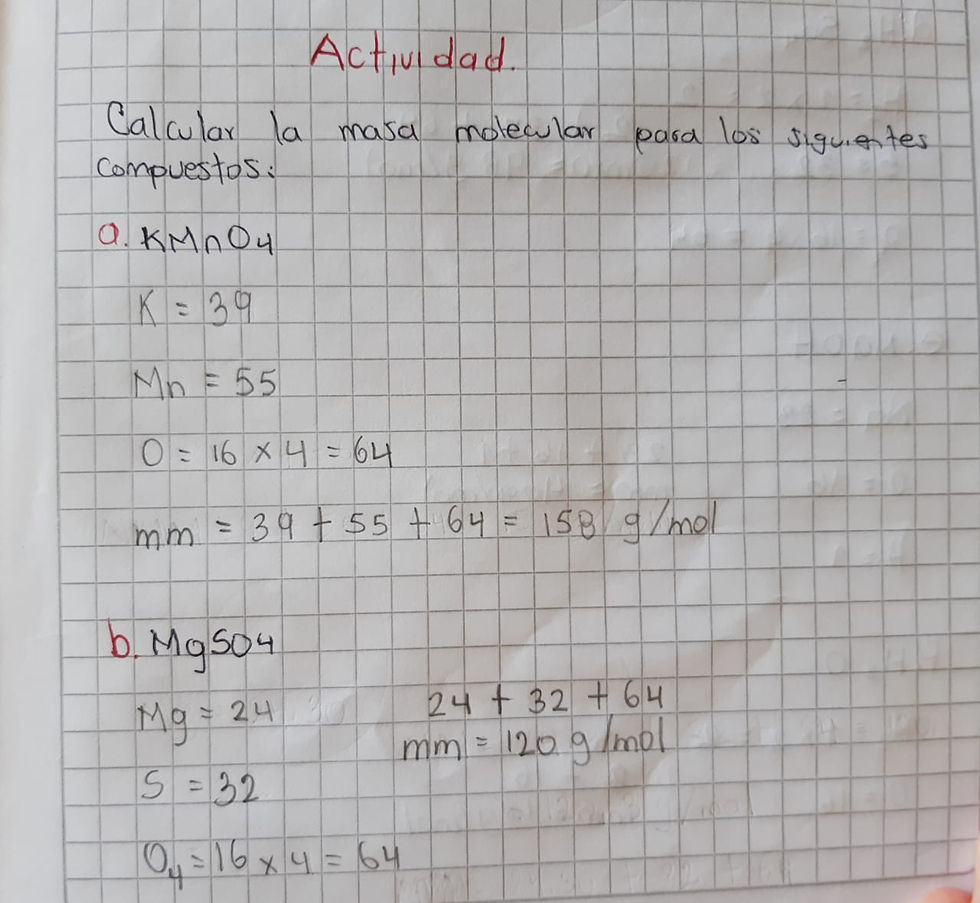 Actividad.
Calcular la masa molecular para los siguientes
compuestos:
a. KMnO4
K = 39
Mn = 55
O = 16 x 4 = 64
mm = 39 + 55 + 64 = 158 g/mol
b. MgSO4
Mg = 24
24 + 32 + 64
mm = 120 g/mol
S = 32
O4 = 16 x 4 = 64